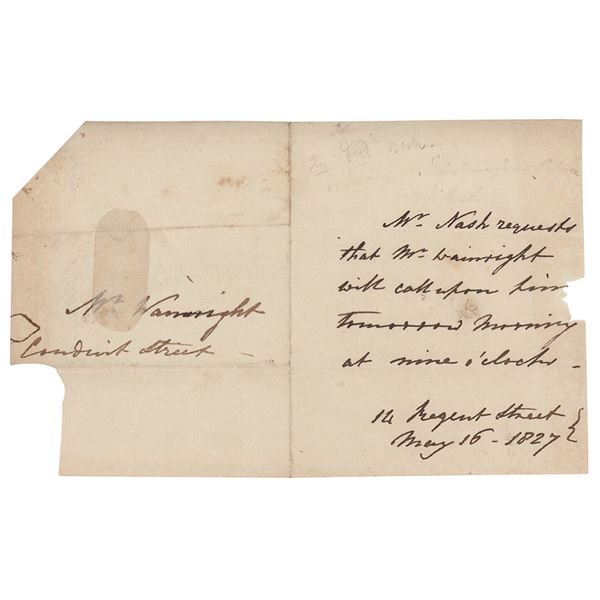 Mr. Wainright
Conduit Street -
Mr. Nash requests
that Mr. Wainright
will call upon him
tomorrow Morning
at nine o'clock -
14 Regent Street
May 16 - 1827